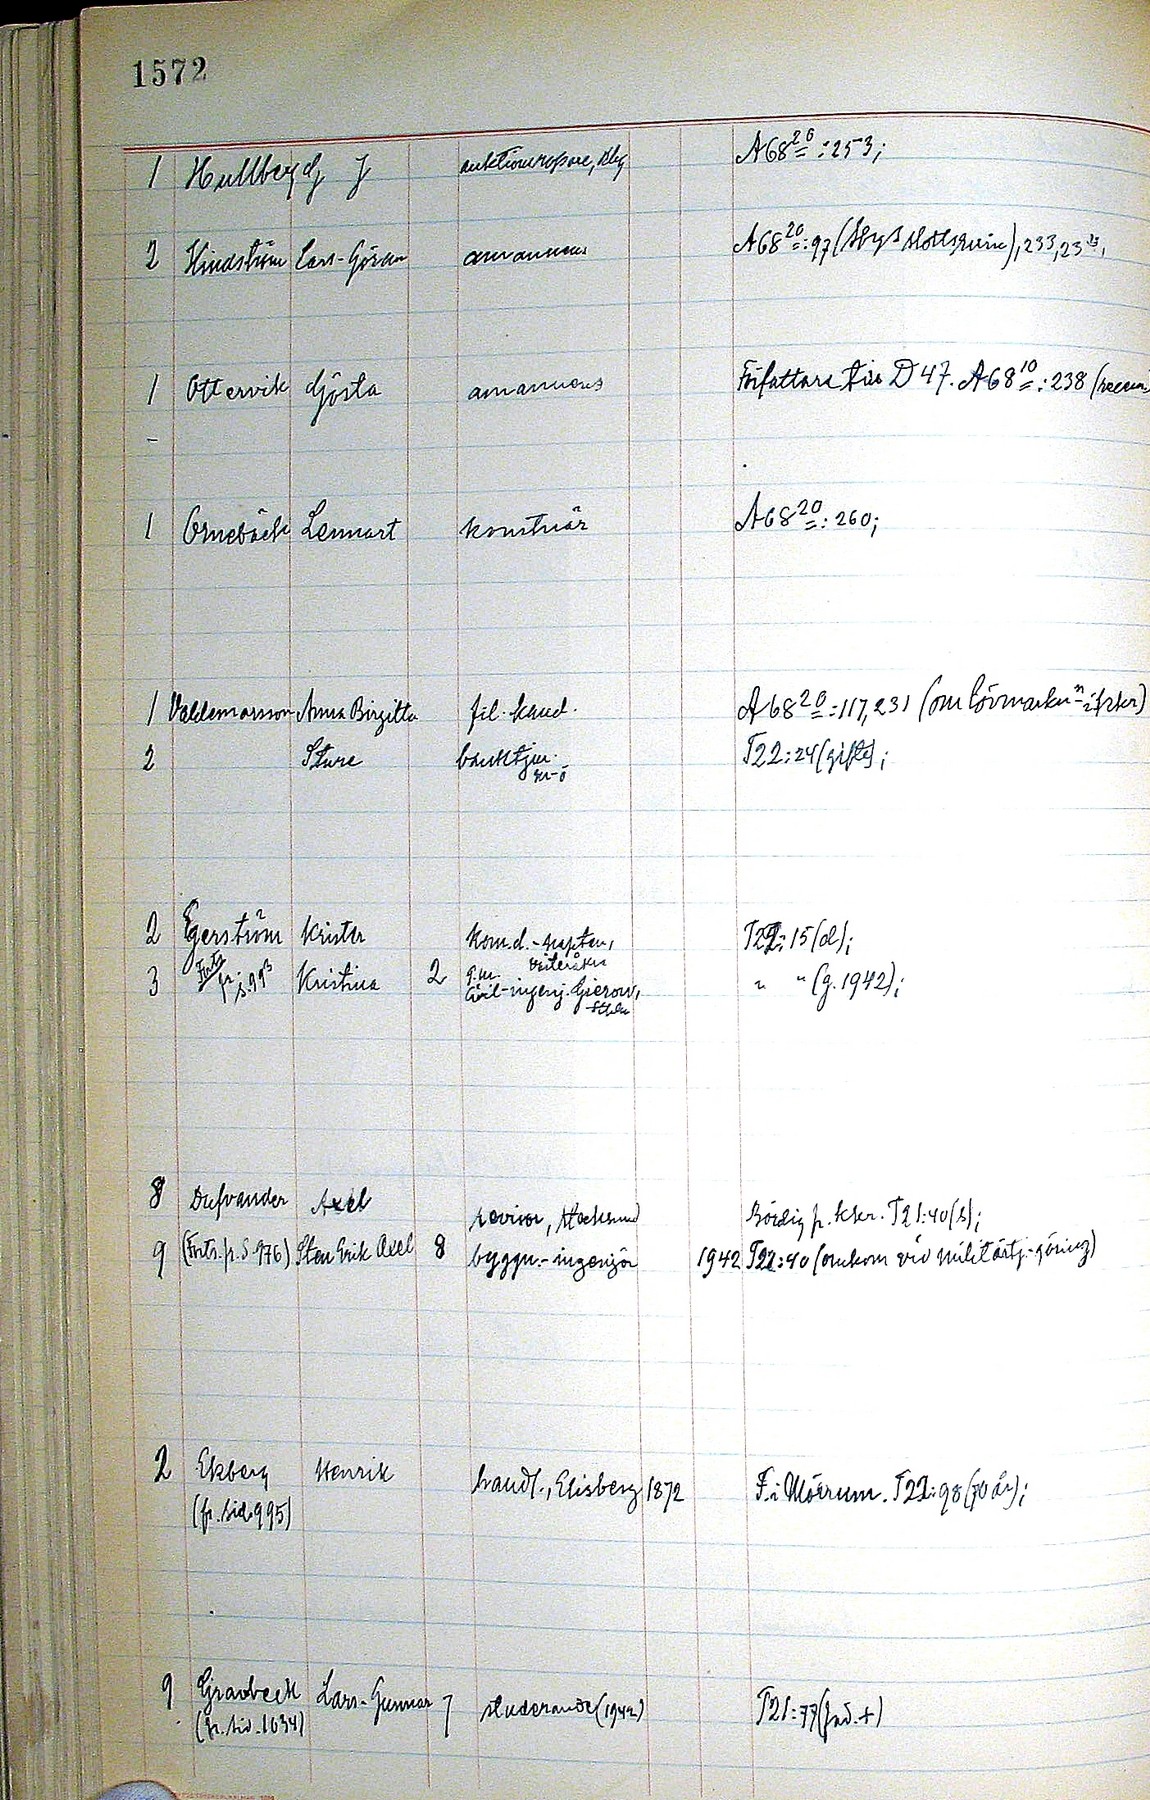 1572
1 Hullberg J auktionsropare, Kbg A68 20:253;
2 Hindström Lars-Göran amanuens A68 20:97 ( ), 233, 23
1 Ottervik Gösta amanuens Författare till D 47. A68 10:238 (recens.
–
1 Ornebäck Lennart konstnär A68 20:260;
1 Valdemarsson Anna Birgitta fil. kand. A68 20:117, 231 (om
2 Sture banktjm. T22:24 (gifte);
2 Egerström Krister kom.d.-kapten, T22:15 (d);
3 Forts. fr. s. 993 Kristina 2 g.m. Västeråker " " (g. 1942);
civil-ingenj. Gierow,
Sthlm
8 Dufvander Axel revisor, Stocksund Bördig fr. Kkr. T21:40 (s);
9 (Forts. fr. S. 976) Sten Erik Axel 8 byggn.-ingenjör 1942 T21:40 (omkom vid militärtj.-göring)
2 Ekberg Henrik handl., Elisberg 1872 F. i Mörrum. T21:98 (70 år);
(fr. sid. 995)
9 Gravbeck Lars-Gunnar 7 studerande (1942) T21:77 (fad. +)
(fr. sid. 1034)